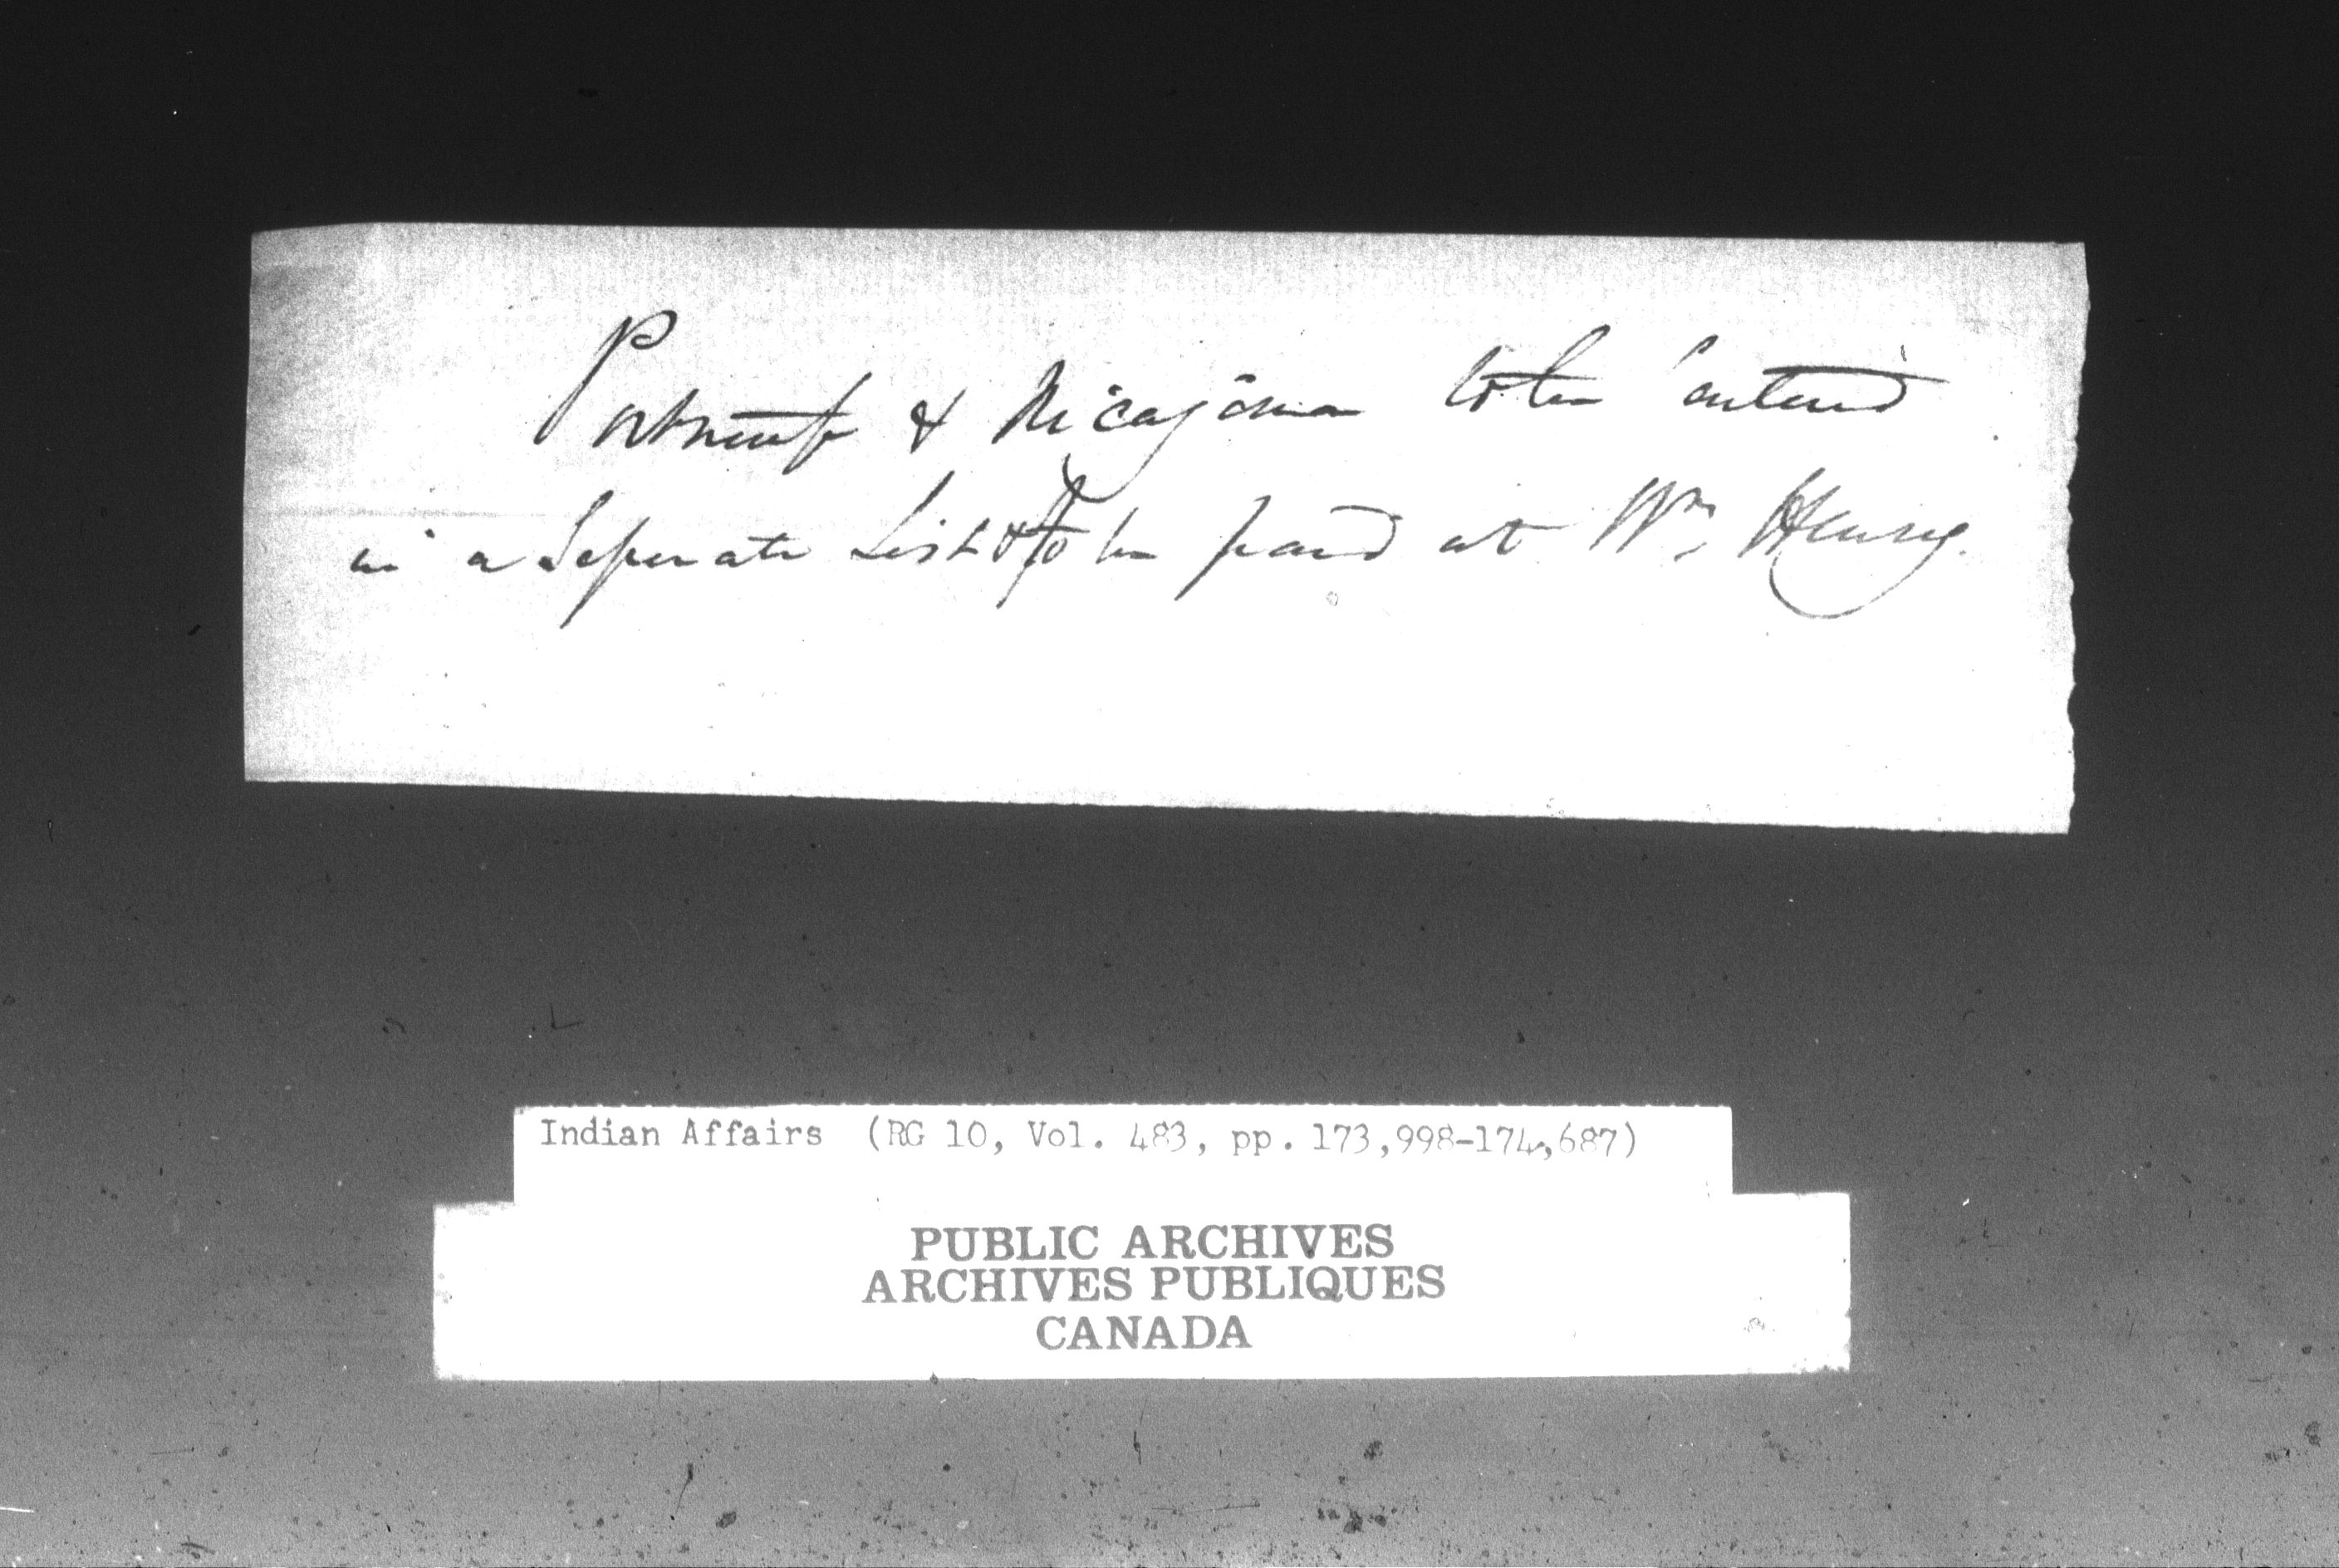 Portneuf & Nicajona to be entered
in a Seperate List & to be paid at Wm. Henry.
Indian Affairs (RG 10, Vol. 483, pp. 173,998-174,687)
PUBLIC ARCHIVES
ARCHIVES PUBLIQUES
CANADA